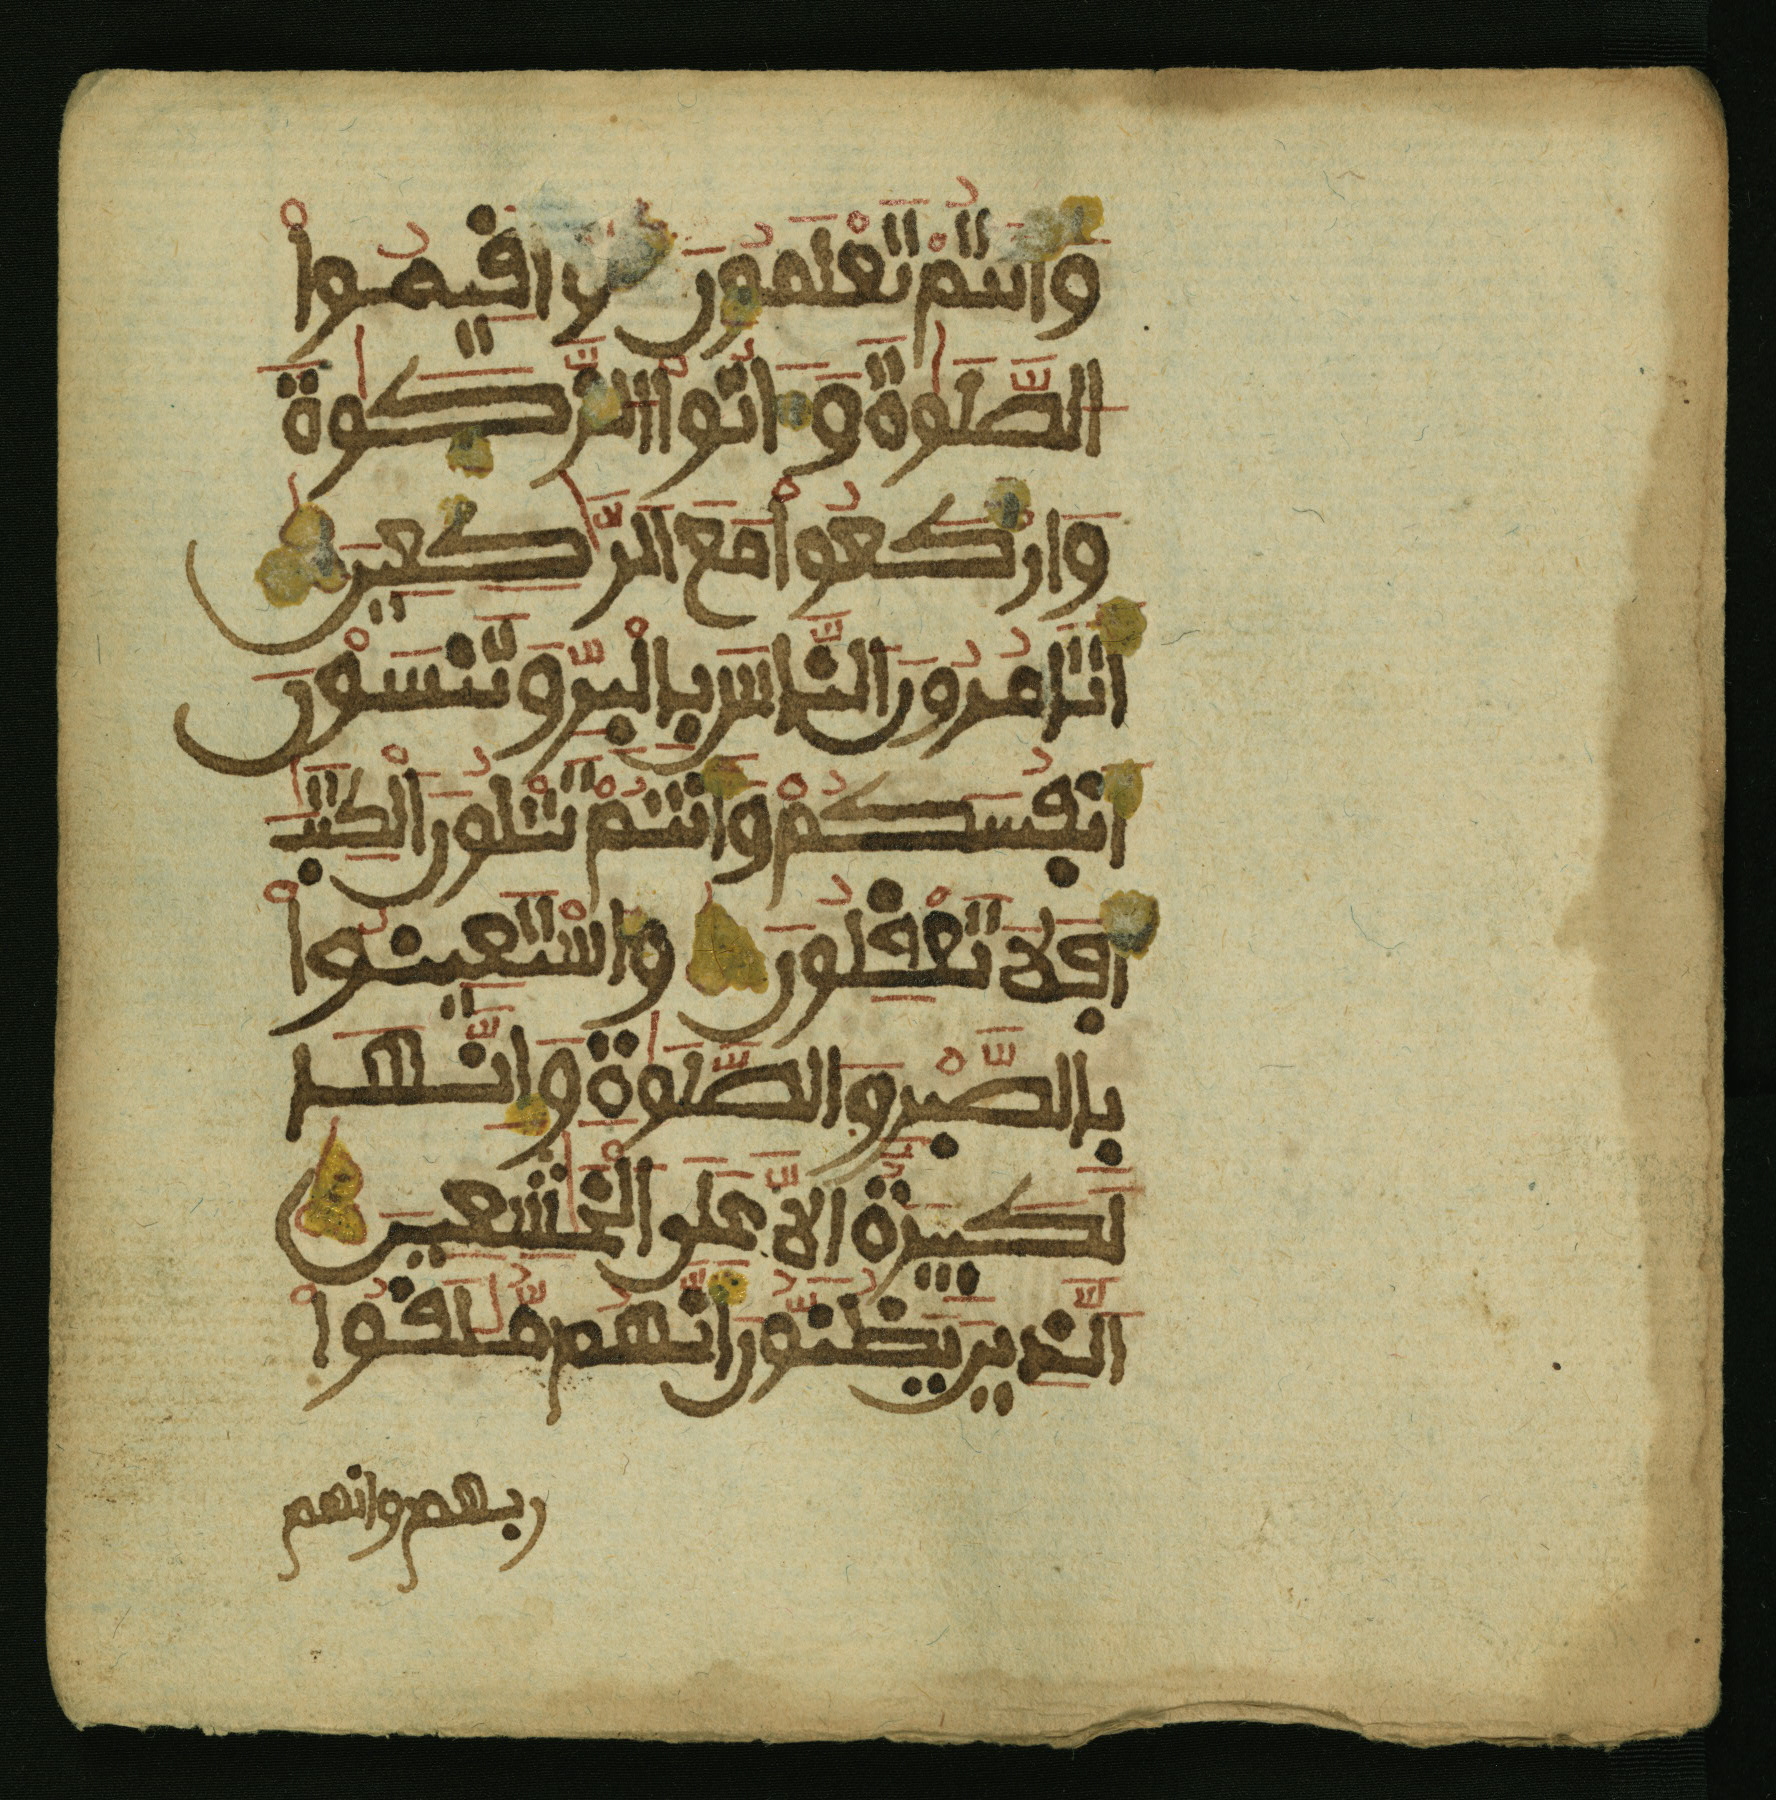 وَانتُمْ تَعْلَمُونَ وَاقِيمُواْ
الصَّلَوٰةَ وَءَاتُواْ الزَّكَوٰةَ
وَارْكَعُواْ مَعَ الرَّٰكِعِينَ
اَتَامُرُونَ النَّاسَ بِالْبِرِّ وَتَنسَوْنَ
أَنفُسَكُمْ وَأَنتُمْ تَتْلُونَ الْكِتَٰبَ
أَفَلَا تَعْقِلُونَ وَاسْتَعِينُواْ
بِالصَّبْرِ وَالصَّلَوٰةِ وَإِنَّهَا
لَكَبِيرَةٌ الَّا عَلَى الْخَٰشِعِينَ
الَّذِينَ يَظُنُّونَ أَنَّهُم مُّلَٰقُواْ
ربهم وانهم